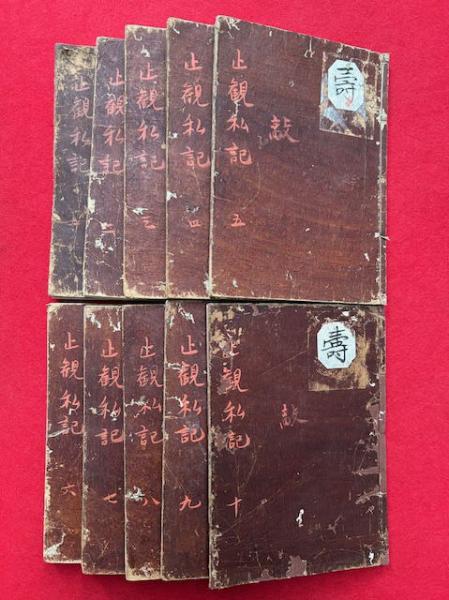 止観私記 五
敲
壽
止観私記 四
止観私記 三
止観私記 二
止観私記 一
止観私記 十
敲
壽
止観私記 九
止観私記 八
止観私記 七
止観私記 六